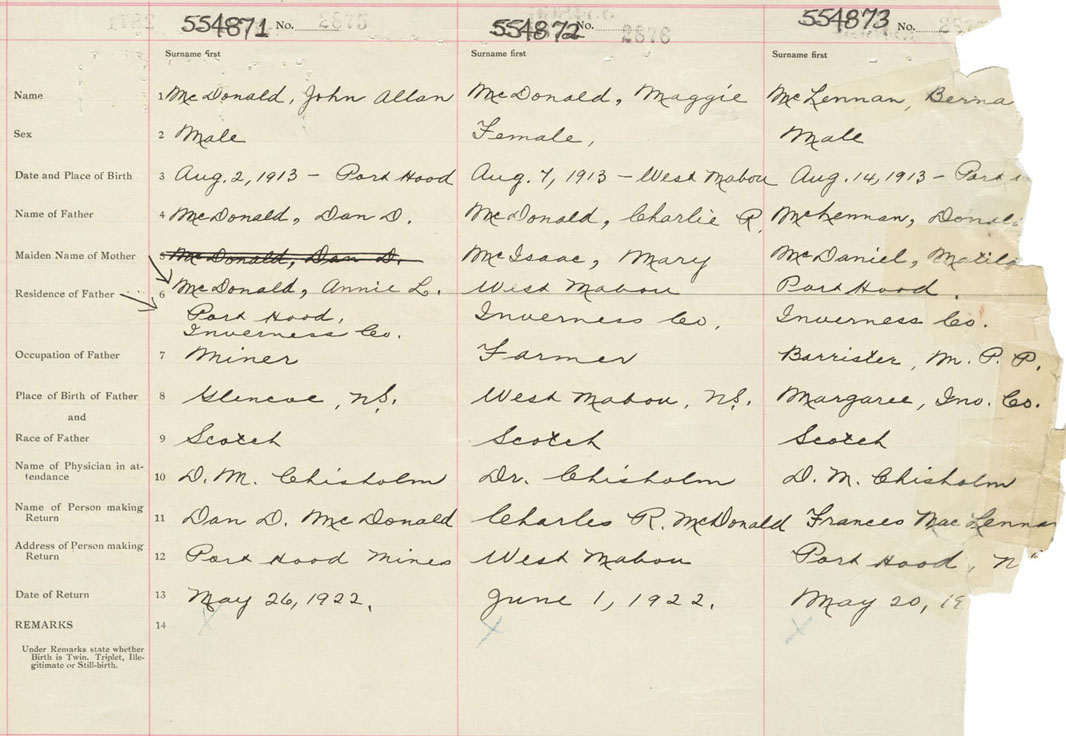 554871 No. 2875 554872 No. 2876 554873 No.
Surname first Surname first Surname first
Name 1 McDonald, John Allan McDonald, Maggie McLennan, Berna
Sex 2 Male Female, Male
Date and Place of Birth 3 Aug. 2, 1913 - Port Hood Aug. 7, 1913 - West Mabou Aug. 14, 1913 - Port
Name of Father 4 McDonald, Dan D. McDonald, Charlie R. McLennan, Donal
Maiden Name of Mother 5 McDonald, Dan D. McIsaac, Mary McDaniel, Matild
Residence of Father 6 McDonald, Annie L. West Mabou Port Hood.
Port Hood, Inverness Co, Inverness Co.
Inverness Co.
Occupation of Father 7 Miner Farmer Barrister, M. P. P.
Place of Birth of Father 8 Glencoe, NS. West Mabou, NS. Margaree, Inv. Co.
and
Race of Father 9 Scotch Scotch Scotch
Name of Physician in at-
tendance 10 D. M. Chisholm Dr. Chisholm D. M. Chisholm
Name of Person making
Return 11 Dan D. McDonald Charles R. McDonald Frances MacLennan
Address of Person making
Return 12 Port Hood Mines West Mabou Port Hood, N
Date of Return 13 May 26, 1922. June 1, 1922. May 20, 19
REMARKS 14
Under Remarks state whether
Birth is Twin. Triplet, Ille-
gitimate or Still-birth.